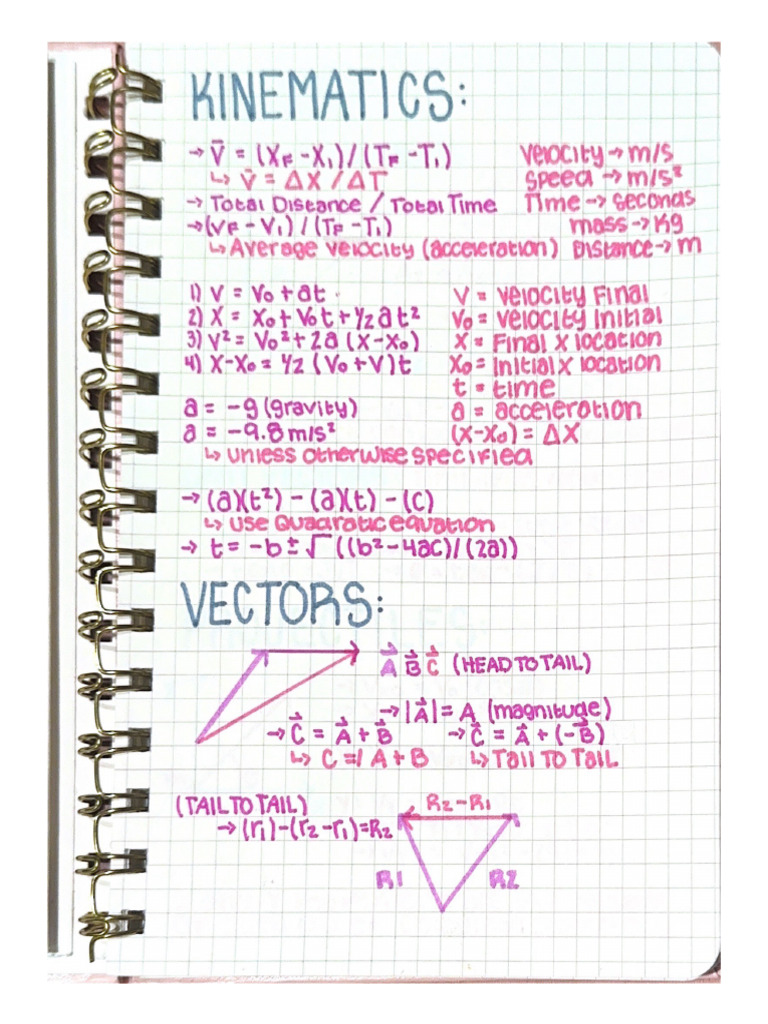 KINEMATICS:
→ V̄ = (XF - X1) / (TF - T1)
↳ V̄ = ΔX / ΔT
→ Total Distance / Total Time
→ (VF - V1) / (TF - T1)
↳ Average velocity (acceleration)
velocity → m/s
speed → m/s²
Time → seconds
mass → Kg
Distance → m
1) V = V₀ + at
2) X = X₀ + V₀t + 1/2 at²
3) V² = V₀² + 2a (X - X₀)
4) X - X₀ = 1/2 (V₀ + V) t
V = velocity Final
V₀ = velocity Initial
X = Final X location
X₀ = Initial X location
t = time
a = acceleration
(X - X₀) = ΔX
a = -g (gravity)
a = -9.8 m/s²
↳ unless otherwise specified
→ (a)(t²) - (a)(t) - (c)
↳ use Quadratic equation
→ t = -b ± √((b² - 4ac) / (2a))
VECTORS:
A⃗ B⃗ C⃗ (HEAD TO TAIL)
→ |A⃗| = A (magnitude)
→ C⃗ = A⃗ + B⃗
↳ C =/ A + B
→ C⃗ = A⃗ + (-B⃗)
↳ Tail TO Tail
(TAIL TO TAIL)
→ (r1) - (r2 - r1) = R2
R2 - R1
R1
R2